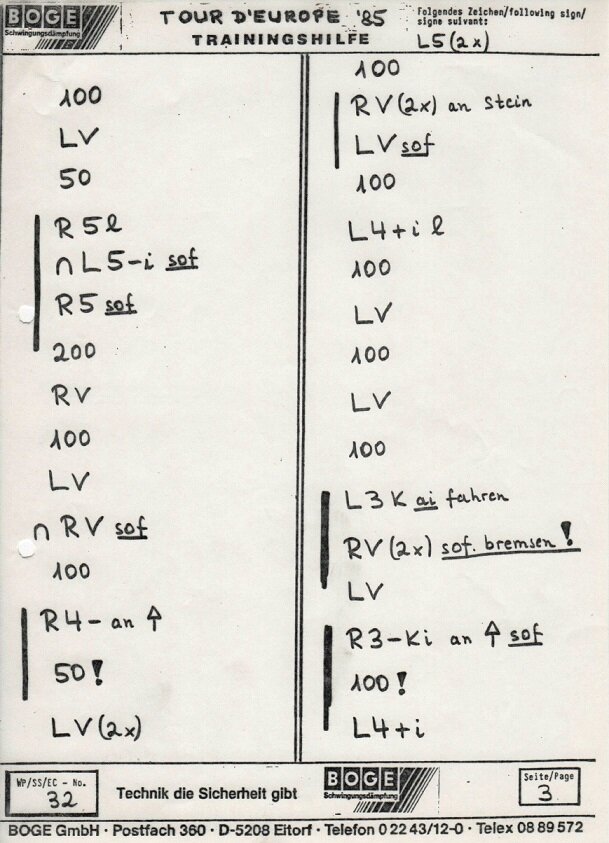 BOGE
Schwingungsdämpfung
TOUR D'EUROPE '85
TRAININGSHILFE
Folgendes Zeichen/following sign/
signe suivant:
L5(2x)
100
LV
50
R5l
∩L5-i sof
R5 sof
200
RV
100
LV
∩ RV sof
100
R4- an ↑
50!
LV(2x)
100
RV(2x) an Stein
LV sof
100
L4+i l
100
LV
100
LV
100
L3K ai fahren
RV(2x) sof. bremsen!
LV
R3-Ki an ↑ sof
100!
L4+i
WP/SS/EC - No.
32
Technik die Sicherheit gibt
BOGE
Schwingungsdämpfung
Seite/Page
3
BOGE GmbH · Postfach 360 · D-5208 Eitorf · Telefon 0 22 43/12-0 · Telex 08 89 572